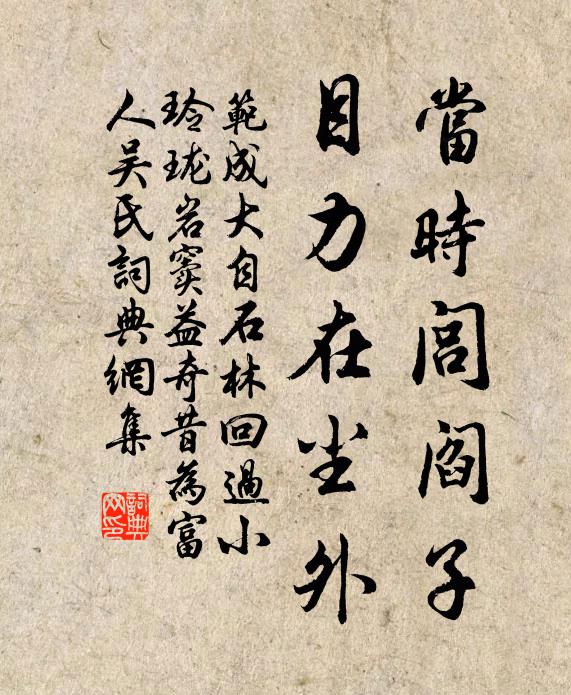 當時閭閻子
目力在尘外
範成大自石林回過小
玲珑岩窦益奇昔為富
人吴氏詞典網集
詞典网印